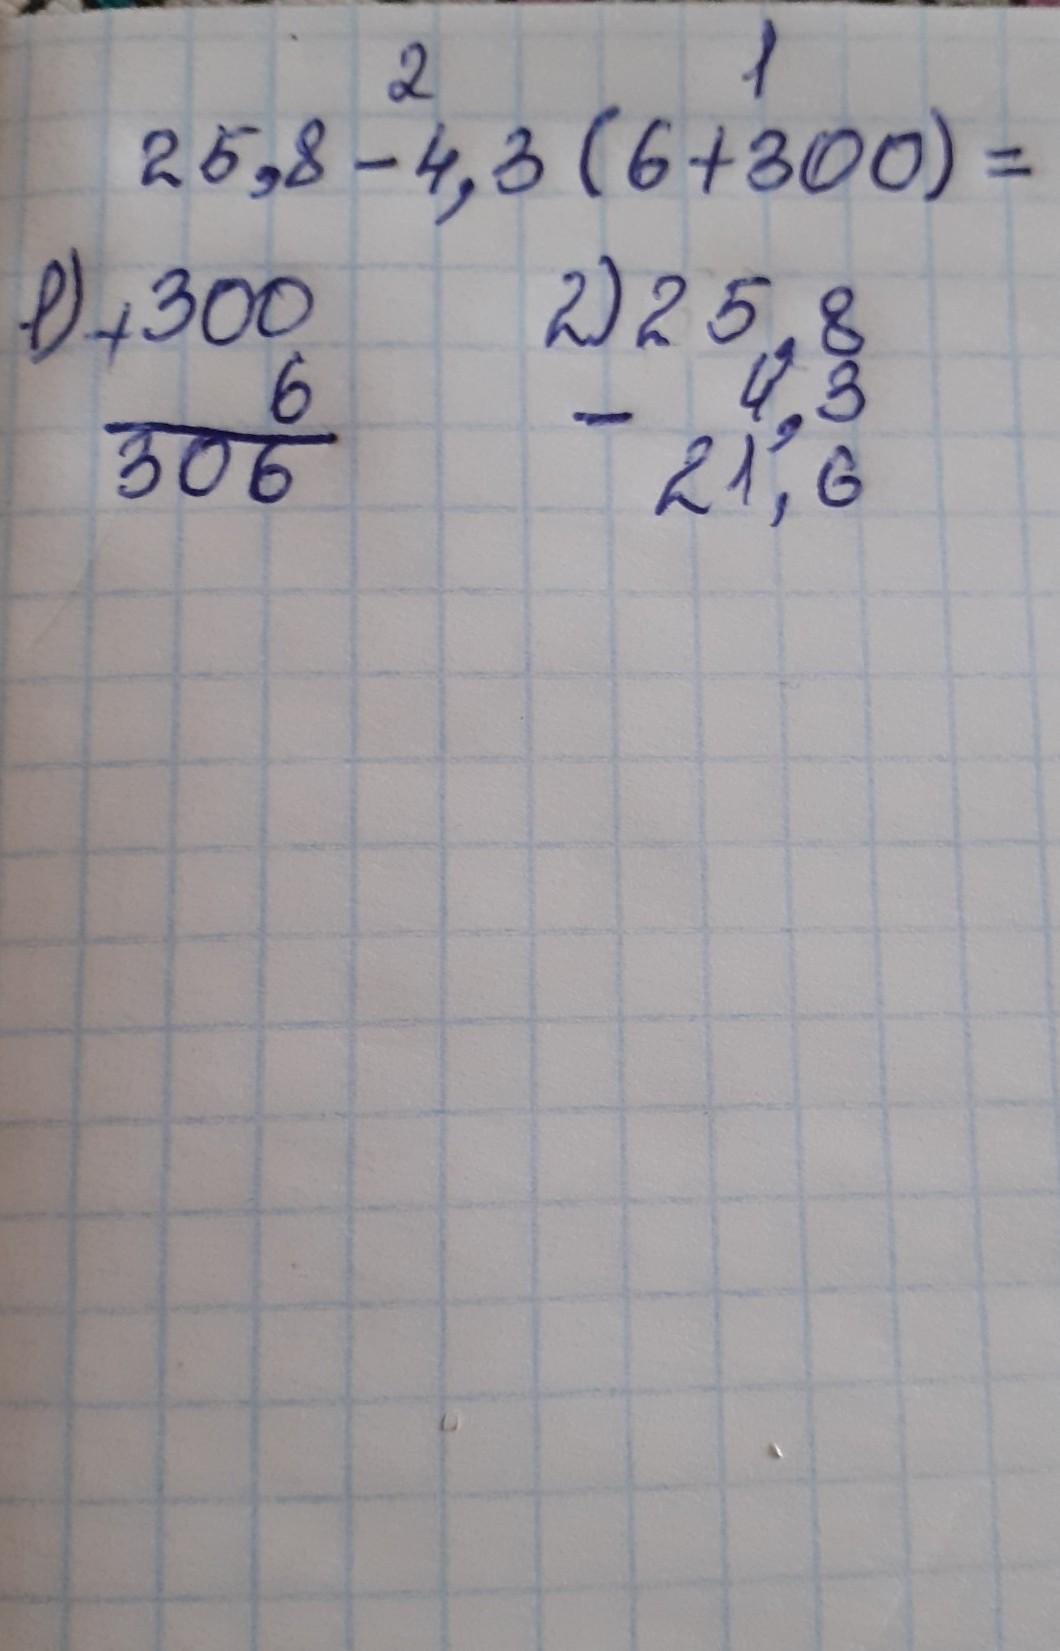 2 1
25,8-4,3(6+300)=
1)+300 2)25,8
6 - 4,3
306 21,6